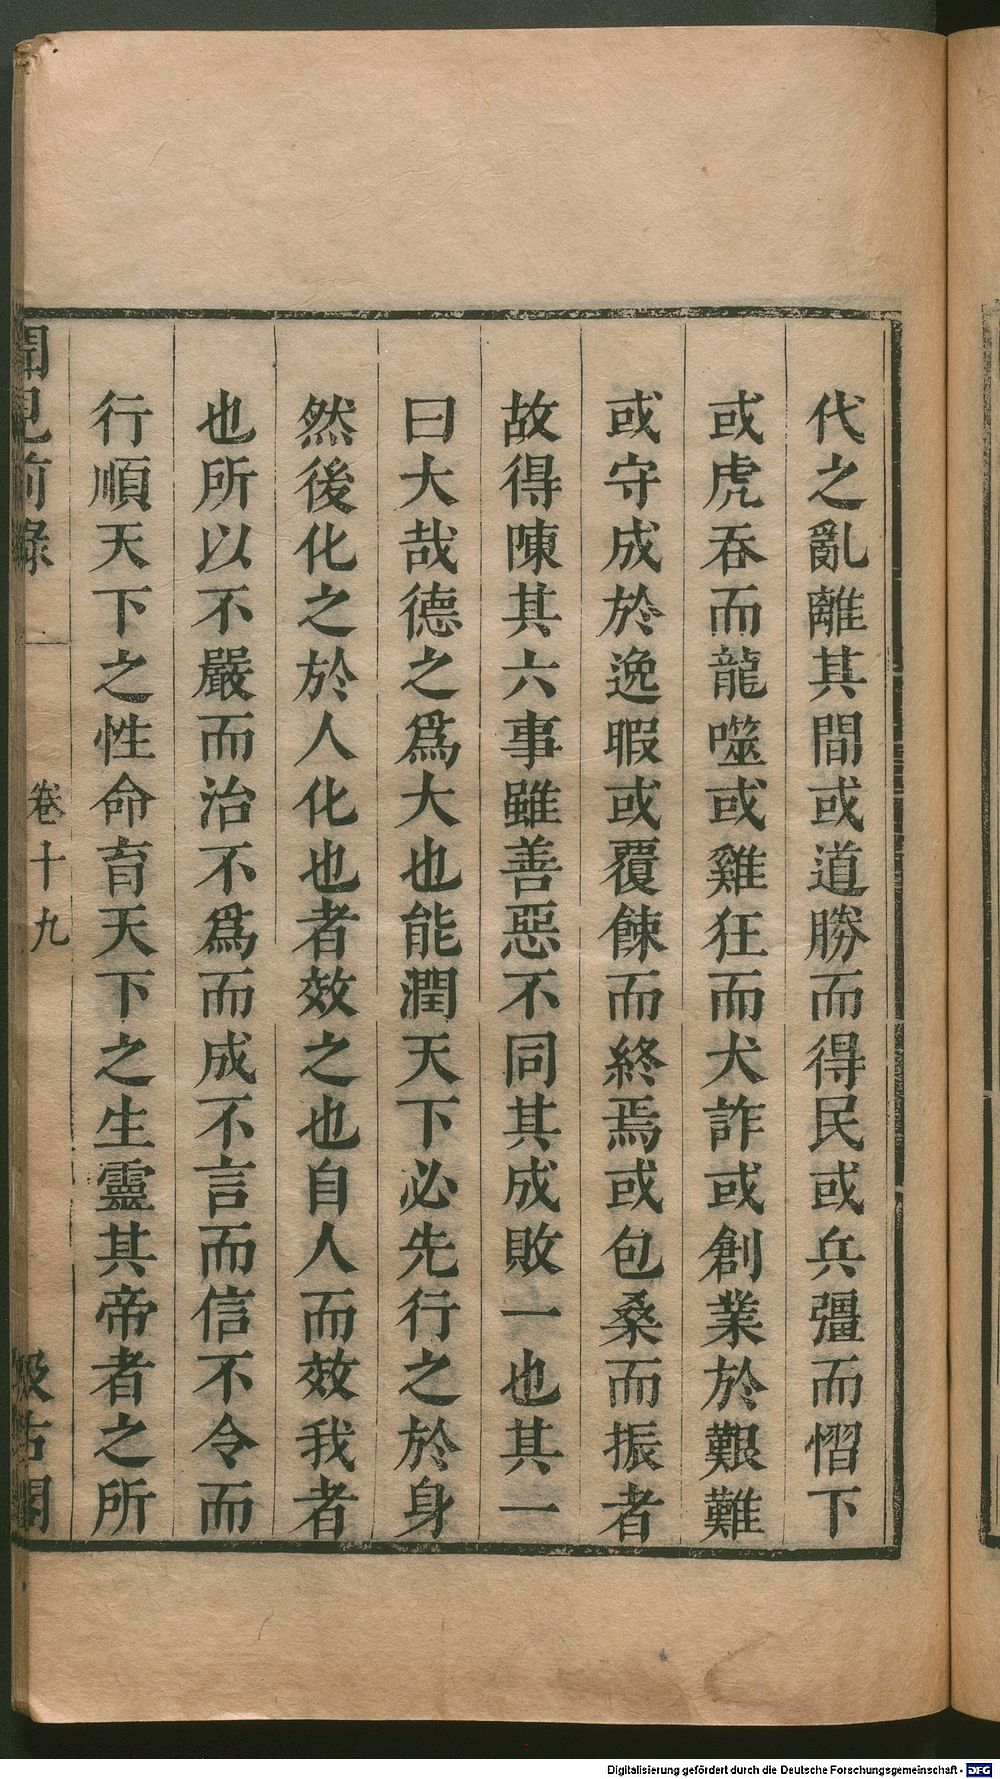 代之亂離其間或道勝而得民或兵彊而慴下
或虎吞而龍噬或雞狂而犬詐或創業於艱難
或守成於逸暇或覆餗而終焉或包桑而振者
故得陳其六事雖善惡不同其成敗一也其一
曰大哉德之爲大也能潤天下必先行之於身
然後化之於人化也者效之也自人而效我者
也所以不嚴而治不爲而成不言而信不令而
行順天下之性命育天下之生靈其帝者之所
聞見前錄
卷十九
汲古閣
Digitalisierung gefördert durch die Deutsche Forschungsgemeinschaft - DFG